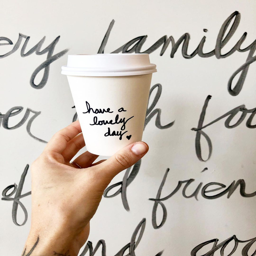 ery family
er th foo
of d frien
nd goo
have a
lovely
day